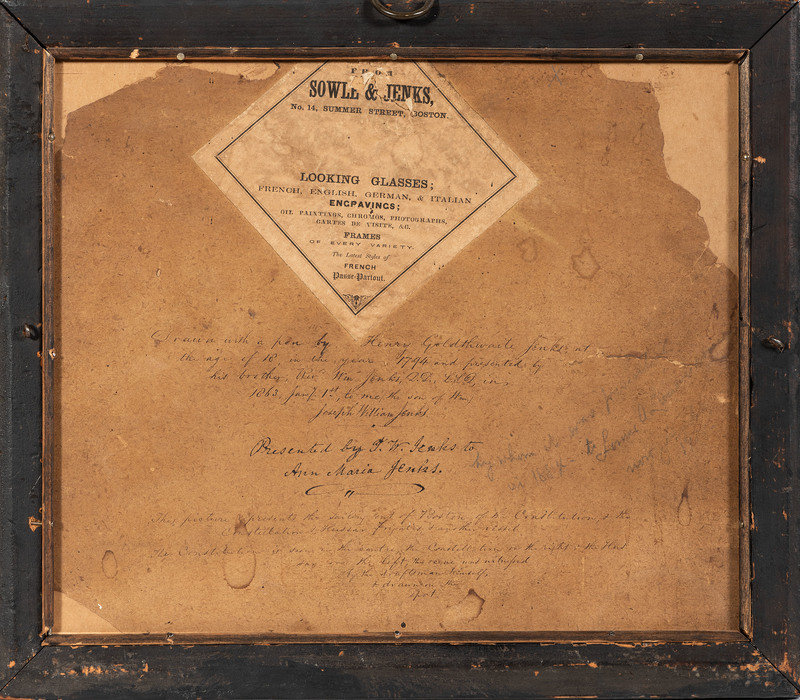 FROM
SOWLE & JENKS,
No. 14, SUMMER STREET, BOSTON
LOOKING GLASSES;
FRENCH, ENGLISH, GERMAN, & ITALIAN
ENGRAVINGS;
OIL PAINTINGS, CHROMOS, PHOTOGRAPHS,
CARTES DE VISITE, &C.
FRAMES
OF EVERY VARIETY
The Latest Styles of
FRENCH
Passe-Partout.
Drawn with a pen by Henry Goldthwaite Jenks at
the age of 18 in the year 1794 and presented by
his brother, Rev. Wm. Jenks, D.D., LL.D, in
1863, Jany. 1st, to me, the son of Wm.
Joseph William Jenks.
Presented by J. W. Jenks to
Ann Maria Jenks.
by whom it was
in to
This picture represents the of Boston, of the Constitution, & the
The Constitution is seen in the centre, the on the right; the
on the left. The scene was witnessed
by the draftsman himself,
& drawn on the
spot.